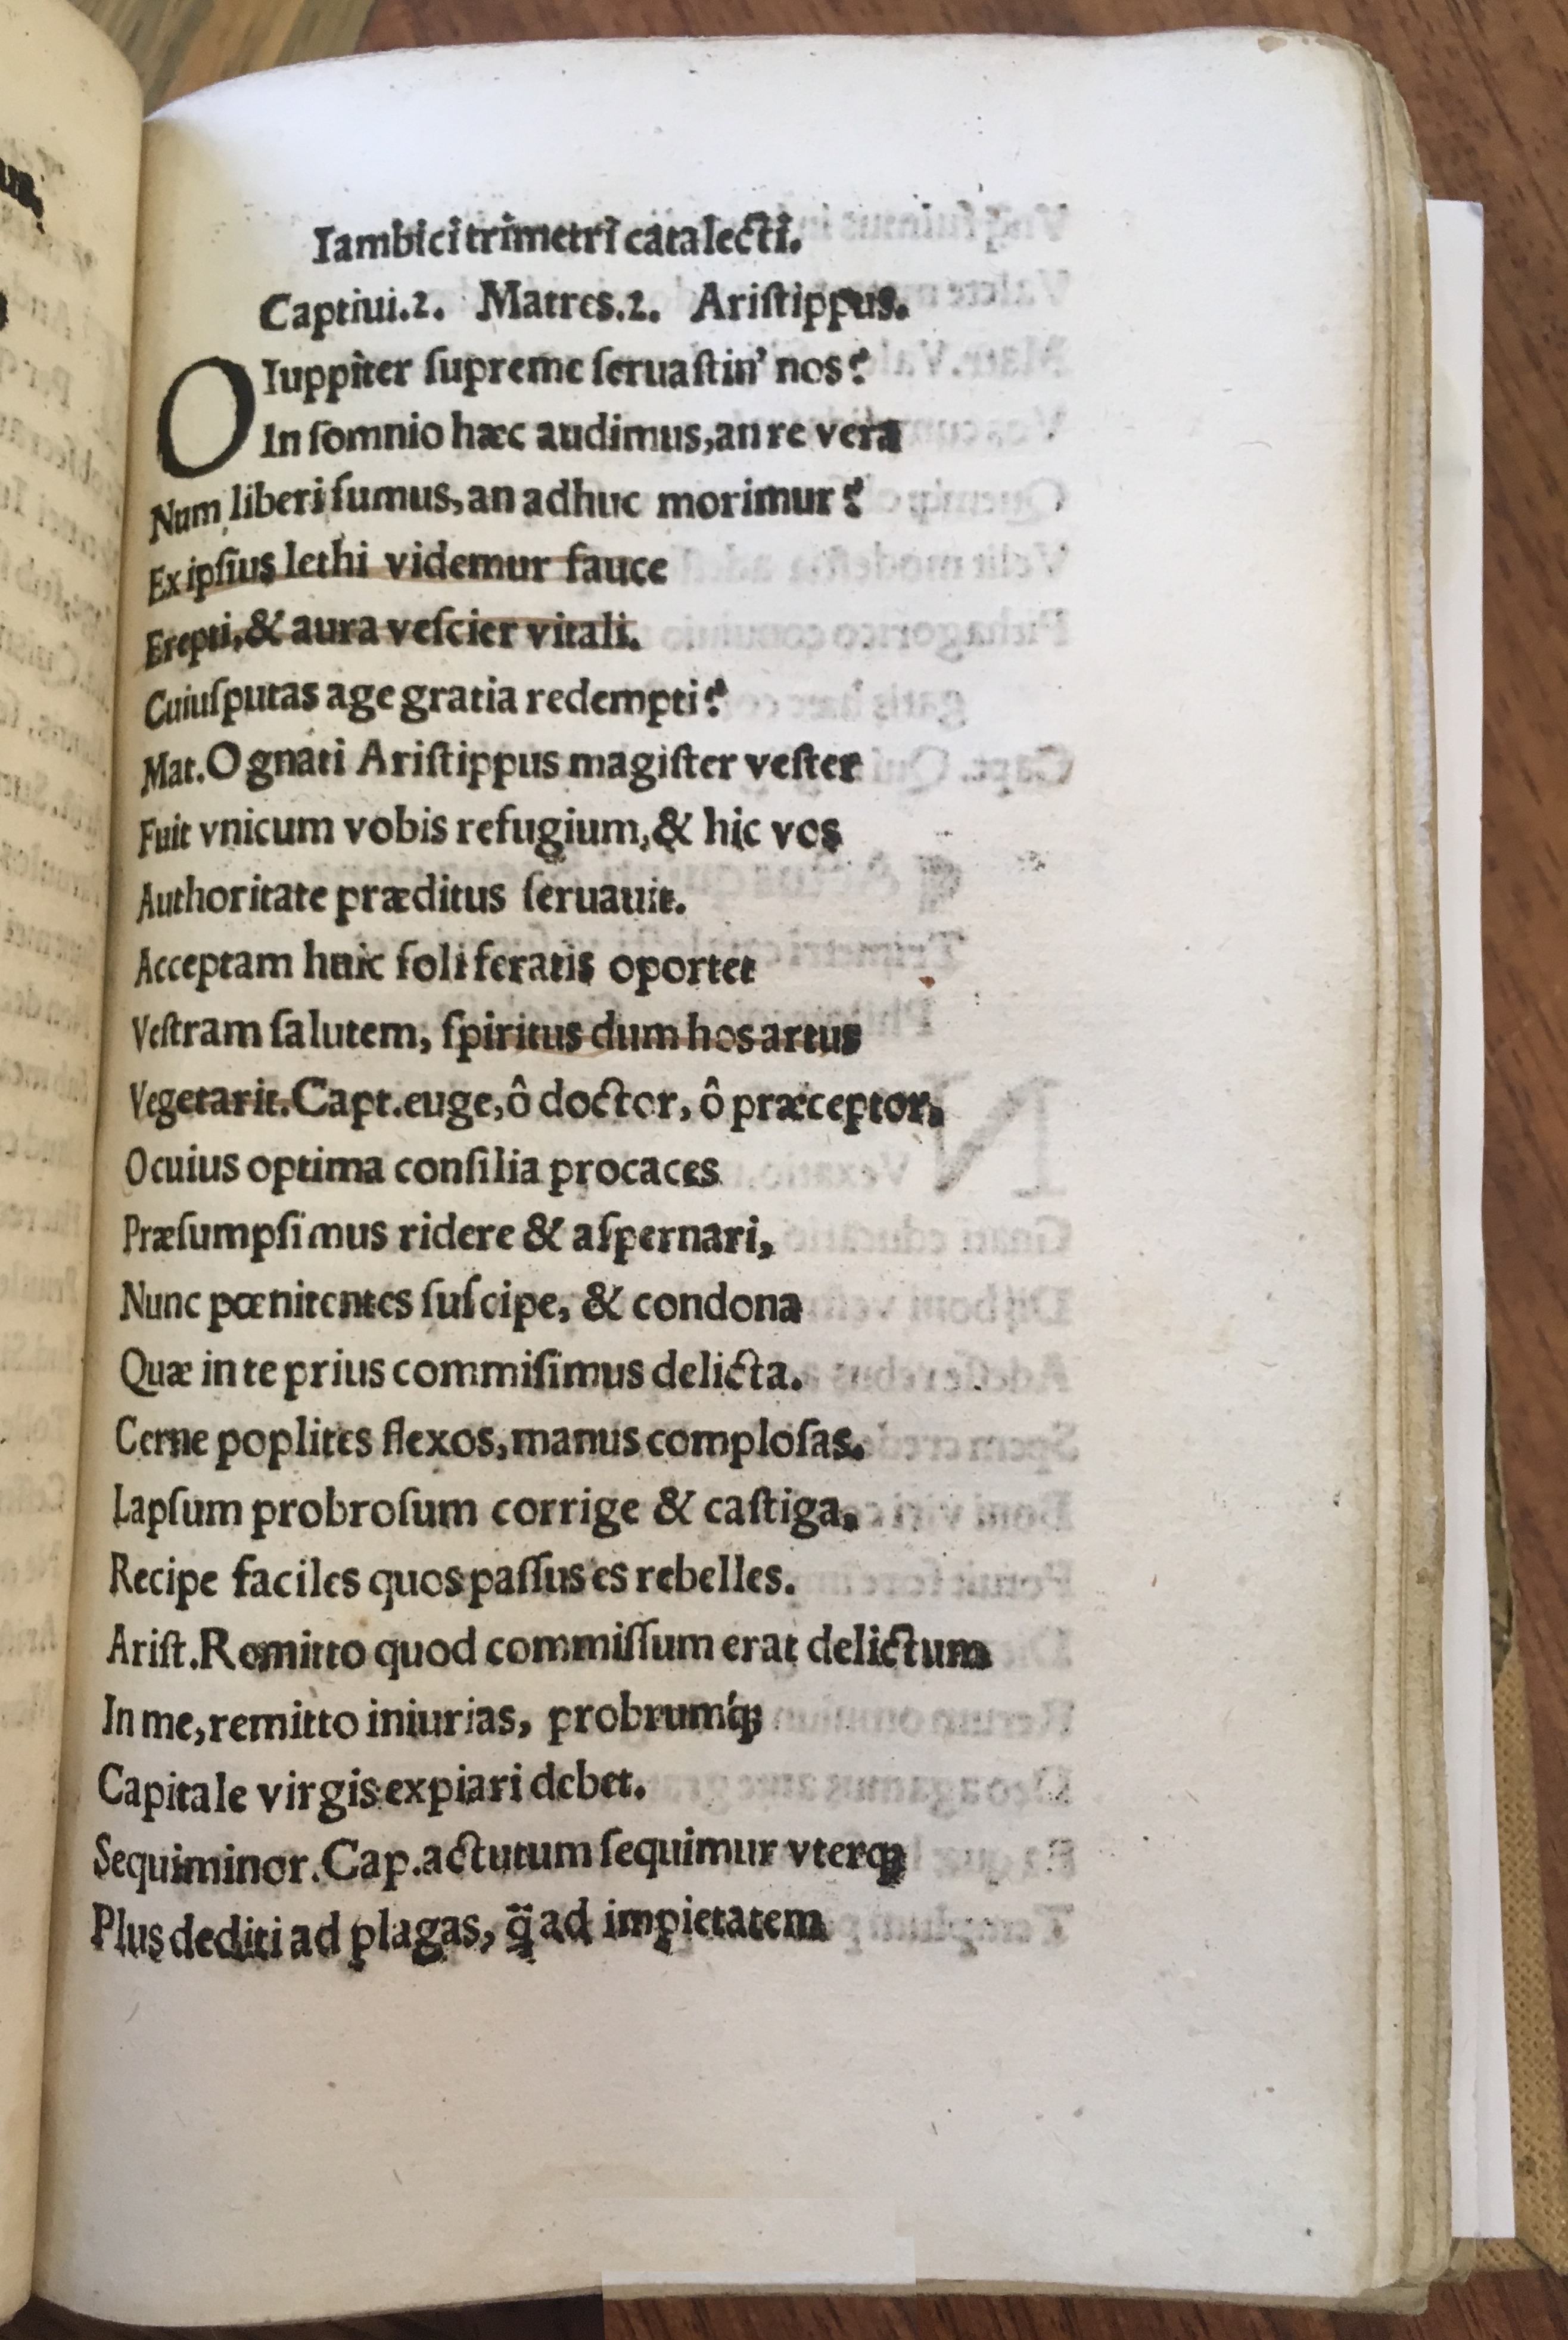 Iambici trimetri catalecti.
Captiui.2. Matres.2. Ariſtippus.
O Iuppiter ſupreme ſeruaſtin' nos?
In ſomnio hæc audimus, an re vera
Num liberi ſumus, an adhuc morimur?
Ex ipſius lethi videmur fauce
Erepti, & aura veſcier vitali.
Cuiuſputas age gratia redempti?
Mat. O gnati Ariſtippus magiſter veſter
Fuit vnicum vobis refugium, & hic vos
Authoritate præditus ſeruauit.
Acceptam huic ſoli feratis oportet
Veſtram ſalutem, ſpiritus dum hos artus
Vegetarit. Capt. euge, ô doctor, ô præceptor,
O cuius optima conſilia procaces
Præſumpſimus ridere & aſpernari,
Nunc pœnitentes ſuſcipe, & condona
Quæ in te prius commiſimus delicta.
Cerne poplites flexos, manus comploſas.
Lapſum probroſum corrige & caſtiga.
Recipe faciles quos paſſus es rebelles.
Ariſt. Remitto quod commiſſum erat delictum
In me, remitto iniurias, probrumq́;
Capitale virgis expiari debet.
Sequiminor. Cap. actutum ſequimur vterq;
Plus dediti ad plagas, q̈̃ ad impietatem